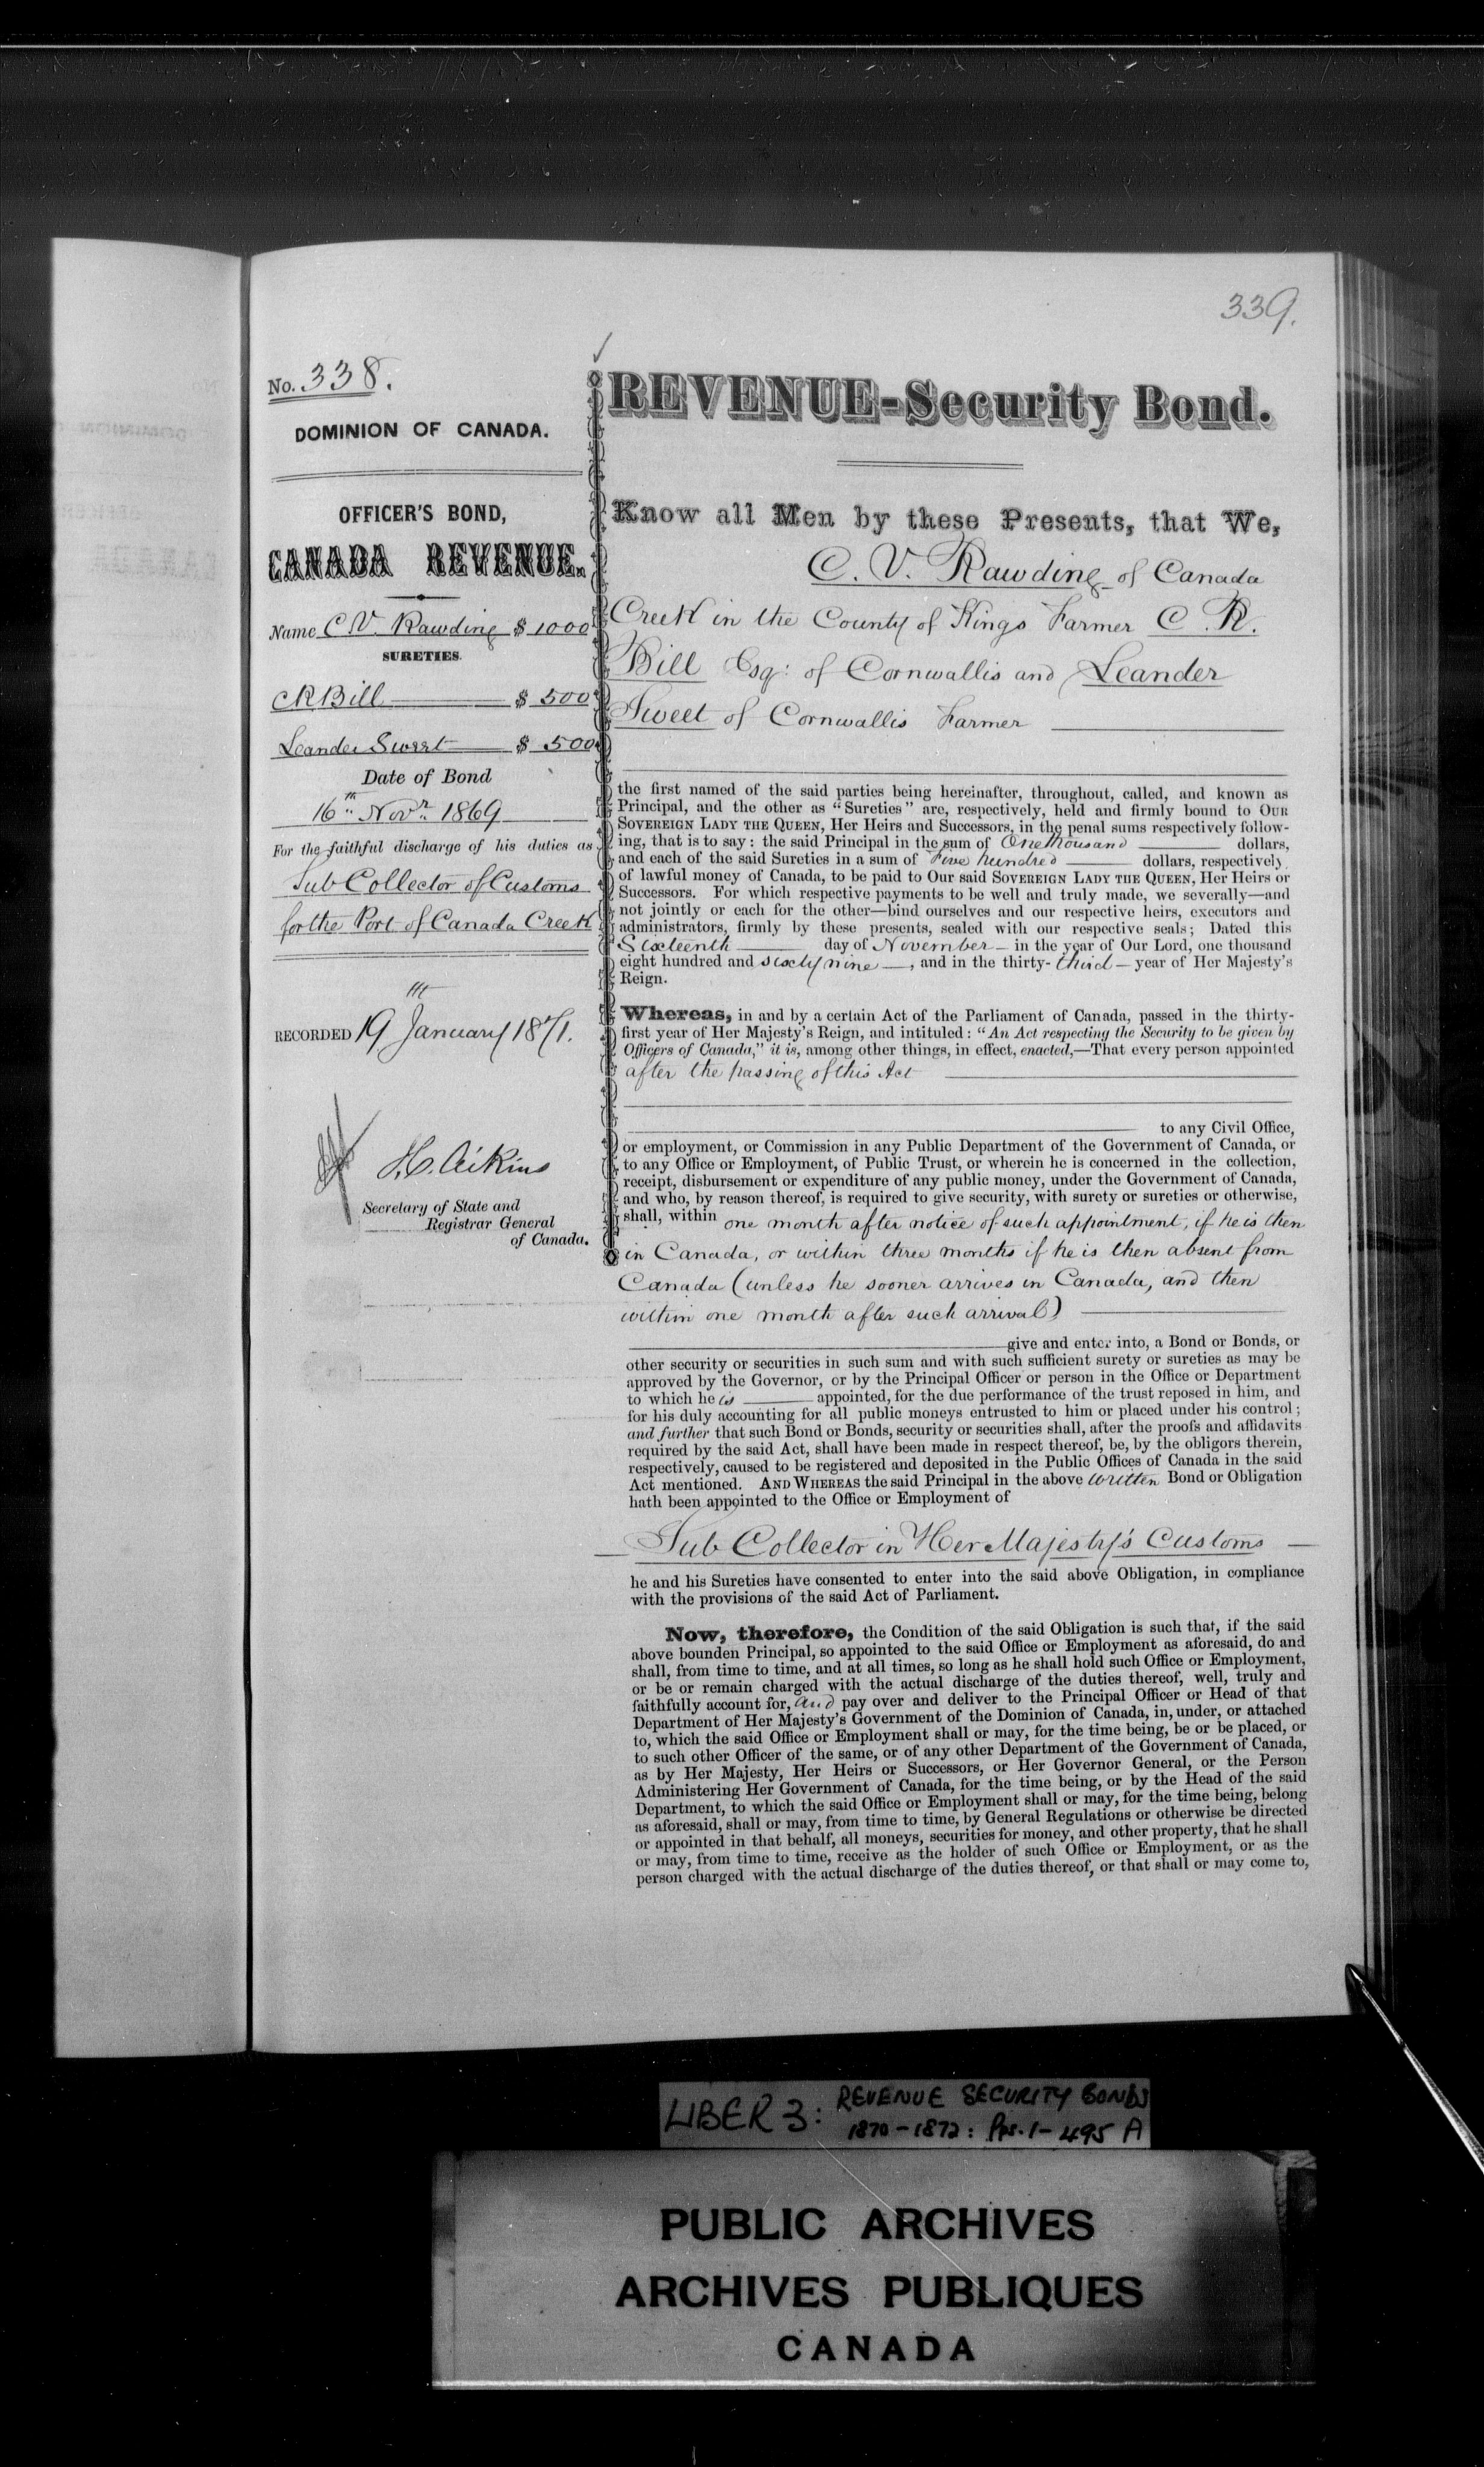 339.
No. 338.
DOMINION OF CANADA.
OFFICER'S BOND,
CANADA REVENUE.
Name C. V. Rawding $ 1000
SURETIES.
C R Bill $ 500
Leander Sweet $ 500
Date of Bond
16th Novr 1869
For the faithful discharge of his duties as
Sub Collector of Customs
for the Port of Canada Creek
RECORDED 19th January 1871.
J.C. Aikins
Secretary of State and
Registrar General
of Canada.
REVENUE-Security Bond.
Know all Men by these Presents, that We,
C. V. Rawding of Canada
Creek in the County of Kings Farmer C. R.
Bill Esq: of Cornwallis and Leander
Sweet of Cornwallis Farmer
the first named of the said parties being hereinafter, throughout, called, and known as
Principal, and the other as "Sureties" are, respectively, held and firmly bound to OUR
SOVEREIGN LADY THE QUEEN, Her Heirs and Successors, in the penal sums respectively follow-
ing, that is to say: the said Principal in the sum of One thousand dollars,
and each of the said Sureties in a sum of Five hundred dollars, respectively,
of lawful money of Canada, to be paid to Our said SOVEREIGN LADY THE QUEEN, Her Heirs or
Successors. For which respective payments to be well and truly made, we severally—and
not jointly or each for the other—bind ourselves and our respective heirs, executors and
administrators, firmly by these presents, sealed with our respective seals; Dated this
Sixteenth day of November in the year of Our Lord, one thousand
eight hundred and sixty nine, and in the thirty-third year of Her Majesty's
Reign.
Whereas, in and by a certain Act of the Parliament of Canada, passed in the thirty-
first year of Her Majesty's Reign, and intituled: "An Act respecting the Security to be given by
Officers of Canada," it is, among other things, in effect, enacted,—That every person appointed
after the passing of this Act
to any Civil Office,
or employment, or Commission in any Public Department of the Government of Canada, or
to any Office or Employment, of Public Trust, or wherein he is concerned in the collection,
receipt, disbursement or expenditure of any public money, under the Government of Canada,
and who, by reason thereof, is required to give security, with surety or sureties or otherwise,
shall, within one month after notice of such appointment, if he is then
in Canada, or within three months if he is then absent from
Canada (unless he sooner arrives in Canada, and then
within one month after such arrival)
give and enter into, a Bond or Bonds, or
other security or securities in such sum and with such sufficient surety or sureties as may be
approved by the Governor, or by the Principal Officer or person in the Office or Department
to which he is appointed, for the due performance of the trust reposed in him, and
for his duly accounting for all public moneys entrusted to him or placed under his control;
and further that such Bond or Bonds, security or securities shall, after the proofs and affidavits
required by the said Act, shall have been made in respect thereof, be, by the obligors therein,
respectively, caused to be registered and deposited in the Public Offices of Canada in the said
Act mentioned. AND WHEREAS the said Principal in the above written Bond or Obligation
hath been appointed to the Office or Employment of
Sub Collector in Her Majesty's Customs
he and his Sureties have consented to enter into the said above Obligation, in compliance
with the provisions of the said Act of Parliament.
Now, therefore, the Condition of the said Obligation is such that, if the said
above bounden Principal, so appointed to the said Office or Employment as aforesaid, do and
shall, from time to time, and at all times, so long as he shall hold such Office or Employment,
or be or remain charged with the actual discharge of the duties thereof, well, truly and
faithfully account for, and pay over and deliver to the Principal Officer or Head of that
Department of Her Majesty's Government of the Dominion of Canada, in, under, or attached
to, which the said Office or Employment shall or may, for the time being, be or be placed, or
to such other Officer of the same, or of any other Department of the Government of Canada,
as by Her Majesty, Her Heirs or Successors, or Her Governor General, or the Person
Administering Her Government of Canada, for the time being, or by the Head of the said
Department, to which the said Office or Employment shall or may, for the time being, belong
as aforesaid, shall or may, from time to time, by General Regulations or otherwise be directed
or appointed in that behalf, all moneys, securities for money, and other property, that he shall
or may, from time to time, receive as the holder of such Office or Employment, or as the
person charged with the actual discharge of the duties thereof, or that shall or may come to,
LIBER 3: REVENUE SECURITY BONDS
1870-1872: Pps. 1-495 A
PUBLIC ARCHIVES
ARCHIVES PUBLIQUES
CANADA